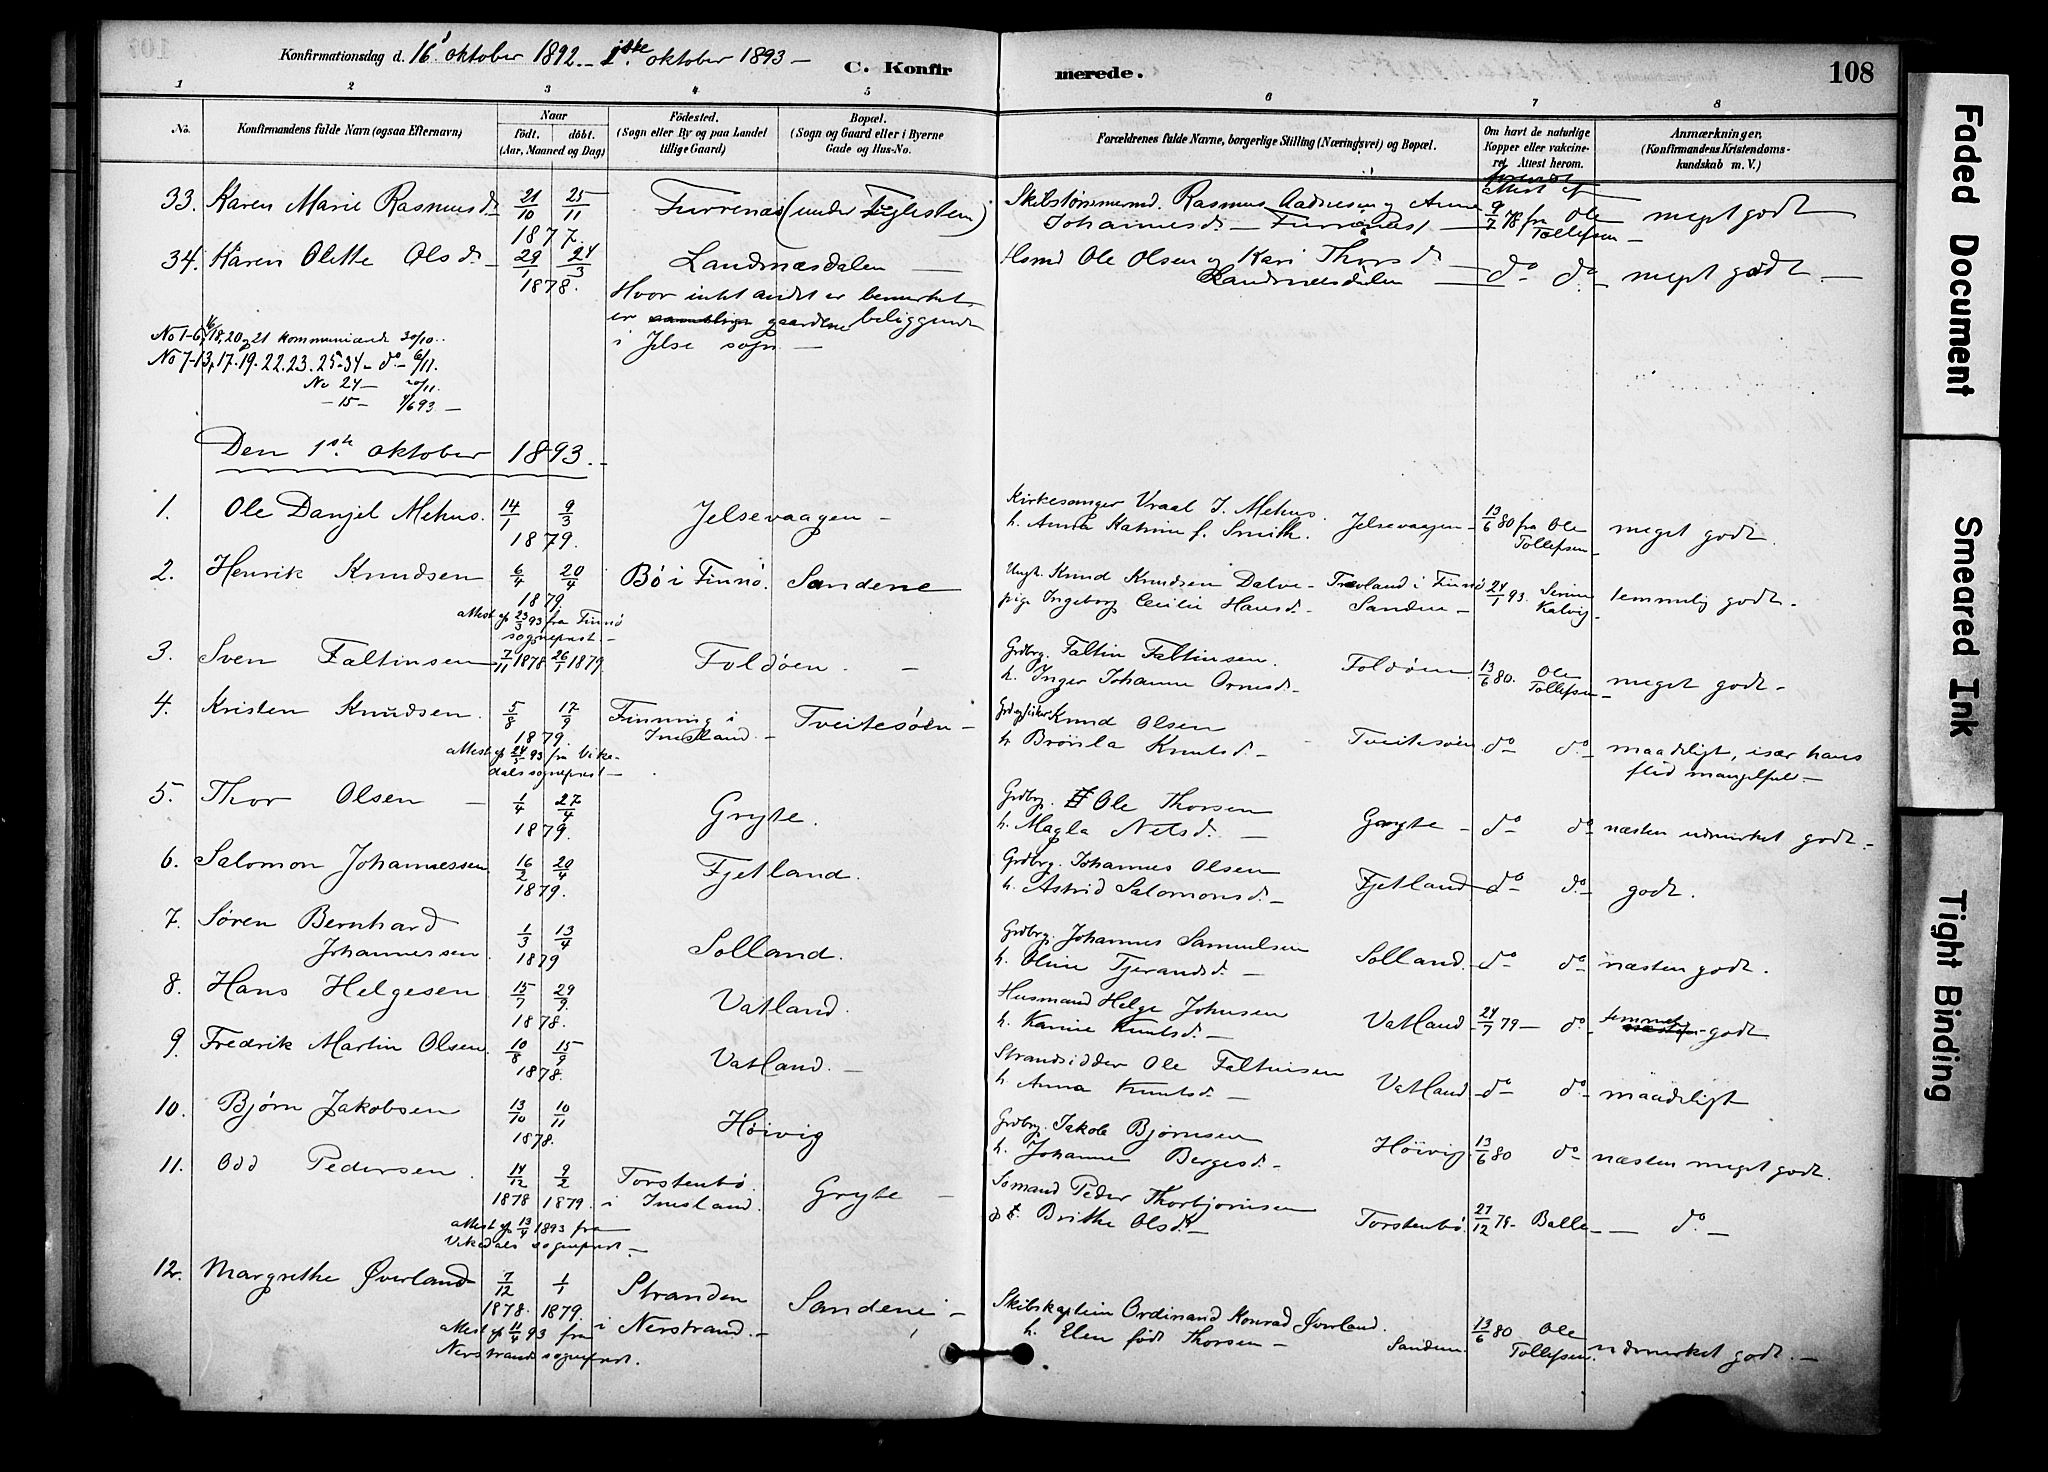 Konfirmationsdag d. 16' oktober 1892. – 1ste oktober 1893 –
C. Konfirmerede.
108
1 2 3 4 5 6 7 8
No.
Konfirmandens fulde Navn (ogsaa Efternavn)
Naar
født. døbt.
(Aar, Maaned og Dag)
Fødested.
(Sogn eller By og paa Landet
tillige Gaard)
Bopæl.
(Sogn og Gaard eller i Byerne
Gade og Hus-No.
Forældrenes fulde Navne, borgerlige Stilling (Næringsvei) og Bopæl.
Om havt de naturlige
Kopper eller vakcine-
ret. Attest herom.
Anmærkninger.
(Konfirmandens Kristendoms-
kundskab m. V.)
33. Karen Marie Rasmusd. 21/10 25/11 1877. Furrenæs (under Teglesten) Skibstømmermd. Rasmus Aadnesen og Anna attest af 9/7 78 fra Ole meget godt
Johannesd. – Furrenæs – Tollefsen –
34. Karen Olette Olsd. – 29/1 24/3 1878. Landnæsdalen – Hsmd Ole Olsen og Kari Thorsd. – do do meget godt –
Landnæsdalen –
Hvor intet andet er bemerket
er samtlige gaardene beliggende
i Jelse sogn –
No 1-6, 16, 18, 20 og 21 kommunicerede 30/10.
No 7-13, 17. 19. 22. 23. 25-34 – do – 6/11.
No 24 – 20/11.
– 15 – 4/6 93 –
Den 1ste oktober 1893. –
1. Ole Danjel Mehus. 14/1 9/3 1879. Jelsevaagen – Kirkesanger Vraal J. Mehus.
h. Anna Katrine f. Smith. Jelsevaagen – 13/6 80 fra Ole Tollefsen – meget godt.
2. Henrik Knudsen 6/4 20/4 1879 Bø i Finnø. Sandene Ungk. Knud Knudsen Dalve – Travland i Finnø 24/1 93. Serine Kalvig temmelig godt.
pige Ingeborg Cecilie Hansd. Sanden –
attest af 23/3 93 fra Finnø
sogneprest. –
3. Sven Faltinsen 7/11 1878 26/1 1879 Foldøen. – Grdbrg. Faltin Faltinsen.
h. Inger Johanne Ormsd. – Foldøen 13/6 80. Ole Tollefsen – meget godt –
4. Kristen Knudsen. 5/8 17/9 1879 Finning i
Imsland. – Tveitesøen – Knud Olsen
h. Brønla Knutsd. – Tveitesøen do do maadeligt, især hans
flid mangelfuld –
attest af 24/5 93 fra Vike-
dals sogneprest –
5. Thor Olsen – 1/4 27/4 1879. Gryte. Grdbrg. Ole Thorsen
h. Magla Nelsd. – Gryte – do do næsten udmerket godt. –
6. Salomon Johannessen 16/2 20/4 1879. Fjetland. Grdbrg. Johannes Olsen
h. Astrid Salomonsd. – Fjetland do do godt.
7. Søren Bernhard
Johannessen 1/3 13/4 1879 Solland. Grdbrg. Johannes Samuelsen
h. Oline Tjerandsd. – Solland. do do næsten godt.
8. Hans Helgesen 15/7 29/9 1878. Vatland. Husmand Helge Johnsen
h. Karine Knutsd. – Vatland 24/7 79 – do temmel. godt
9. Fredrik Martin Olsen. 10/8 15/9 1878. Vatland. – Strandsidder Ole Faltinsen
h. Anna Knutsd. – Vatland do do maadeligt
10. Bjørn Jakobsen 13/10 10/11 1878. Høivig Grdbrg. Jakob Bjørnsen
h. Johanne Bergesd. – Høivig 13/6 80 do næsten meget godt.
11. Odd Pedersen. 14/12 9/2 1878 1879. Torstenbø
i Imsland. Gryte – Sømand Peder Thorbjørnsen
Brithe Olsd. – Torstenbø 27/12 79 – Balle – do –
attest af 13/4 1893 fra
Vikedals sogneprest –
12. Margrethe Øverland 7/12 1/1 1878. 1879. Stranden
i Nerstrand. – Sandene – Skibskaptein Ordinand Konrad Øverland.
h. Elen født Thorsen – Sanden. 13/6 80 Ole Tollefsen. udmerket godt. –
attest af 11/4 93 fra
Nerstrands sogneprest.
Faded Document
Smeared Ink
Tight Binding